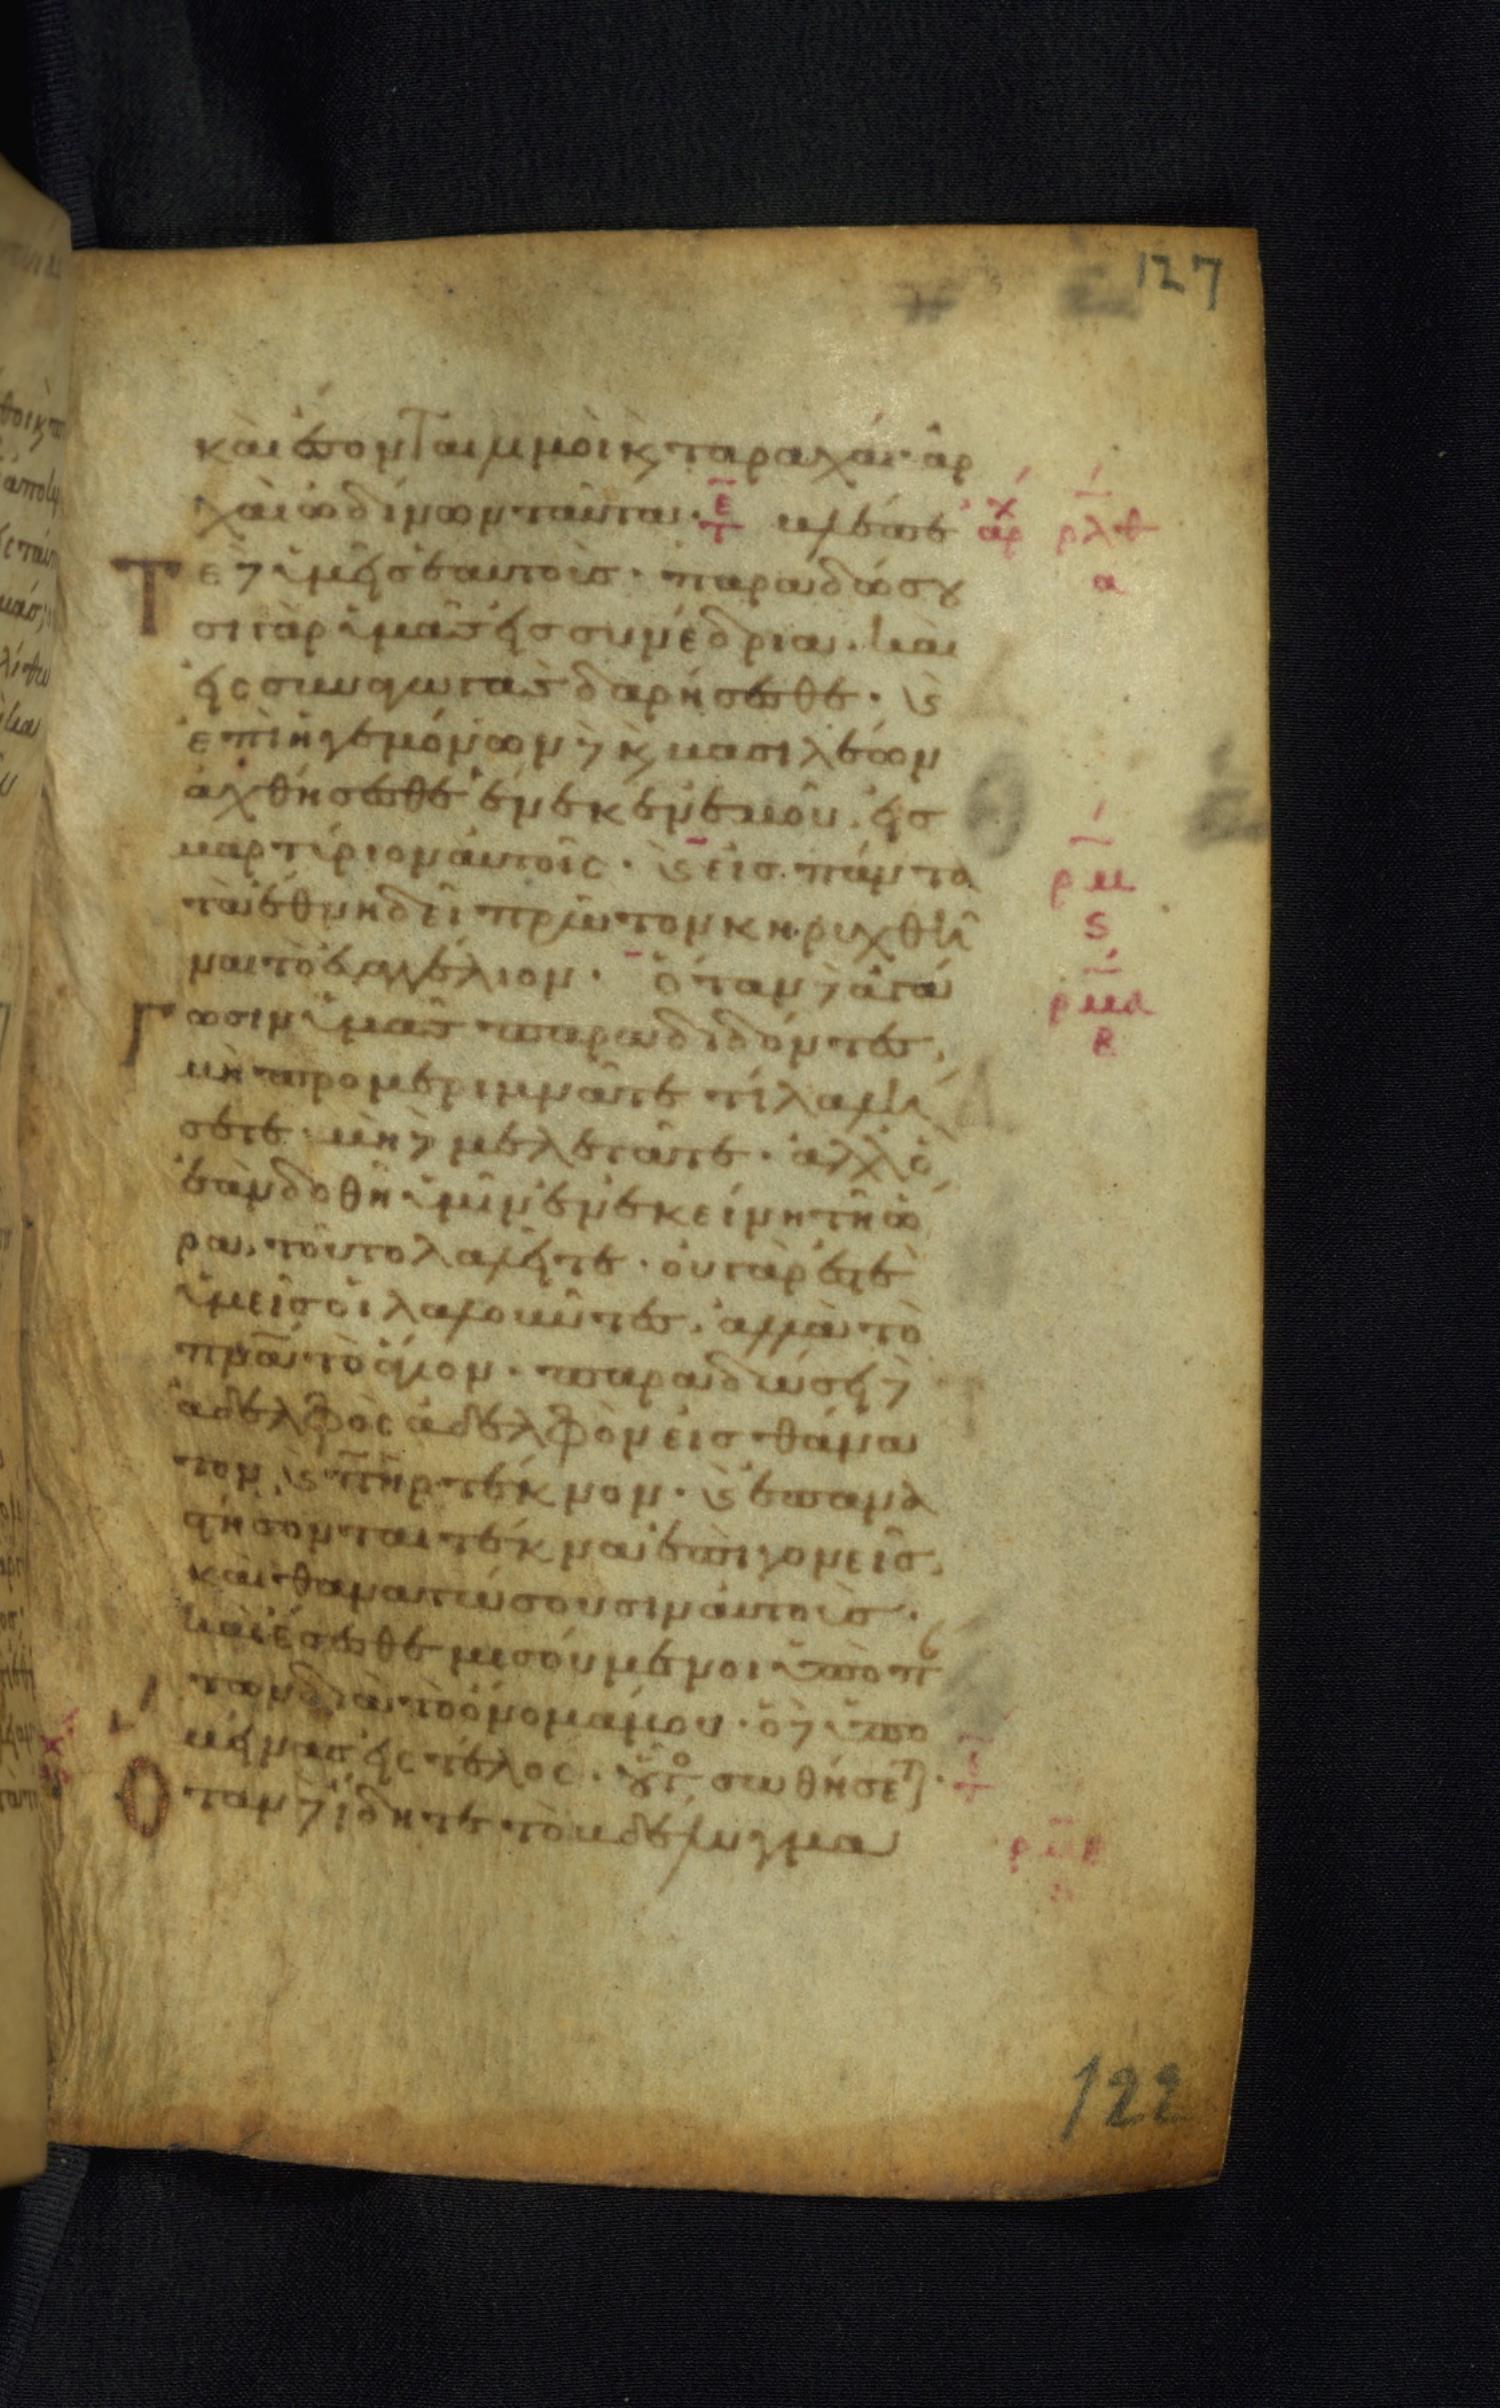 127
καὶ ἔσονται λιμοὶ κ ταραχάι· ἀρ
χαὶ ὠδίνων ταῦτα· ε̄τ βλέπε ἀρχ ρλθ
Τε δὲ ὑμεῖς ἑαυτοὺς· παραδώσου α
σι γὰρ ὑμᾶς εἰς συνέδρια· καὶ
εἰς συναγωγὰς δαρήσεσθε· κ
ἐπὶ ἡγεμόνων δὲ κ βασιλέων
ἀχθήσεσθε ἕνεκεν ἐμοῦ· εἰς
μαρτύριον ἀυτοῖς· κ εἰς πάντα ρμ
τὰ ἔθνη δεῖ πρῶτον κηρυχθῆ ς
ναι τὸ εὐαγγέλιον· ὅταν δὲ ἀγά ρμα
γωσιν ὑμᾶς παραδιδόντες, β
μὴ προμεριμνᾶτε τί λαλή
σετε· μὴ δὲ μελετᾶτε· ἀλλ' ὃ
ἐὰν δοθῆ ὑμῖν ἐν ἐκείνη τῆ ὥ
ρα, τοῦτο λαλεῖτε· οὐ γὰρ ἐστὲ
ὑμεῖς οἱ λαλοῦντες· ἀλλὰ τὸ
πνᾶ τὸ ἅγιον· παραδώσει δὲ
ἀδελφὸς ἀδελφὸν εἰς θάνα
τον, κ πηρ τέκνον· κ ἐπανα
στήσονται τέκνα ἐπὶ γονεῖς,
καὶ θανατώσουσιν ἀυτοὺς·
καὶ ἔσεσθε μισούμενοι ὑπὸ πά
των διὰ τὸ ὄνομά μου· ὁ δὲ ὑπο
μείνας εἰς τέλος· οὗτο σωθήσετ·
Ὅταν δὲ ἴδητε τὸ βδέλυγμα ρμβ
122